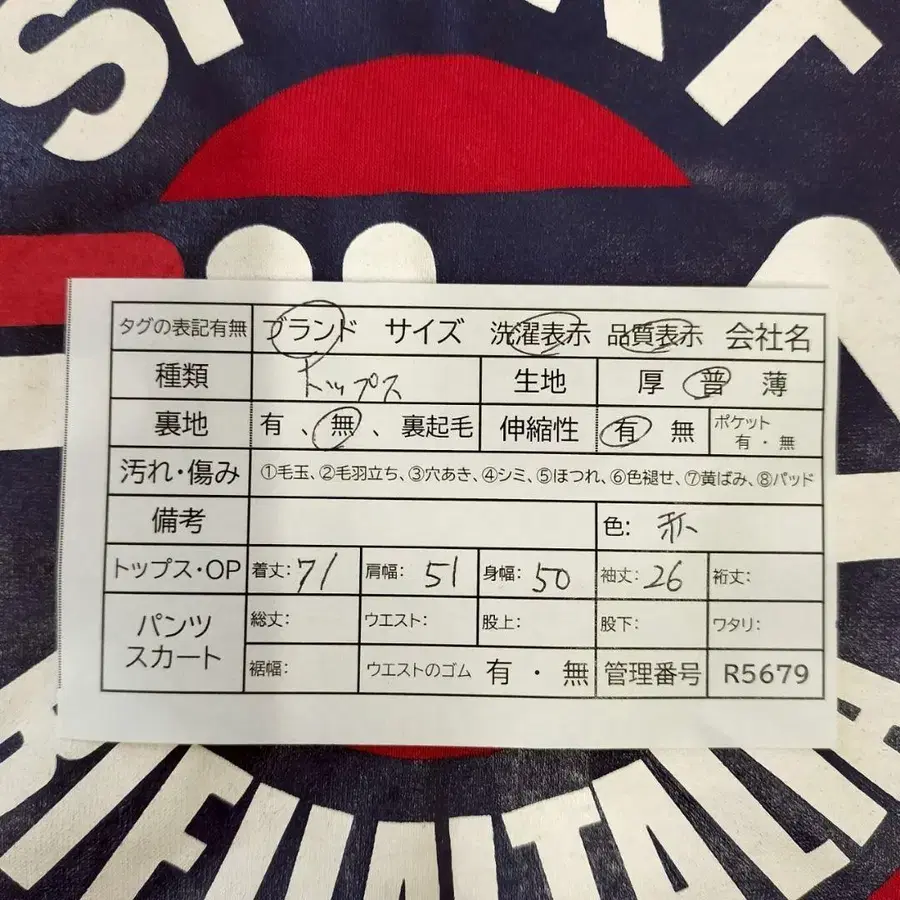 タグの表記有無 ブランド サイズ 洗濯表示 品質表示 会社名
種類 トップス 生地 厚 普 薄
裏地 有 、 無 、 裏起毛 伸縮性 有 無 ポケット 有・無
汚れ・傷み ①毛玉、②毛羽立ち、③穴あき、④シミ、⑤ほつれ、⑥色褪せ、⑦黄ばみ、⑧パッド
備考 色: 赤
トップス・OP 着丈:71 肩幅: 51 身幅: 50 袖丈:26 裄丈:
パンツ
スカート
総丈: ウエスト: 股上: 股下: ワタリ:
裾幅: ウエストのゴム 有 ・ 無 管理番号 R5679